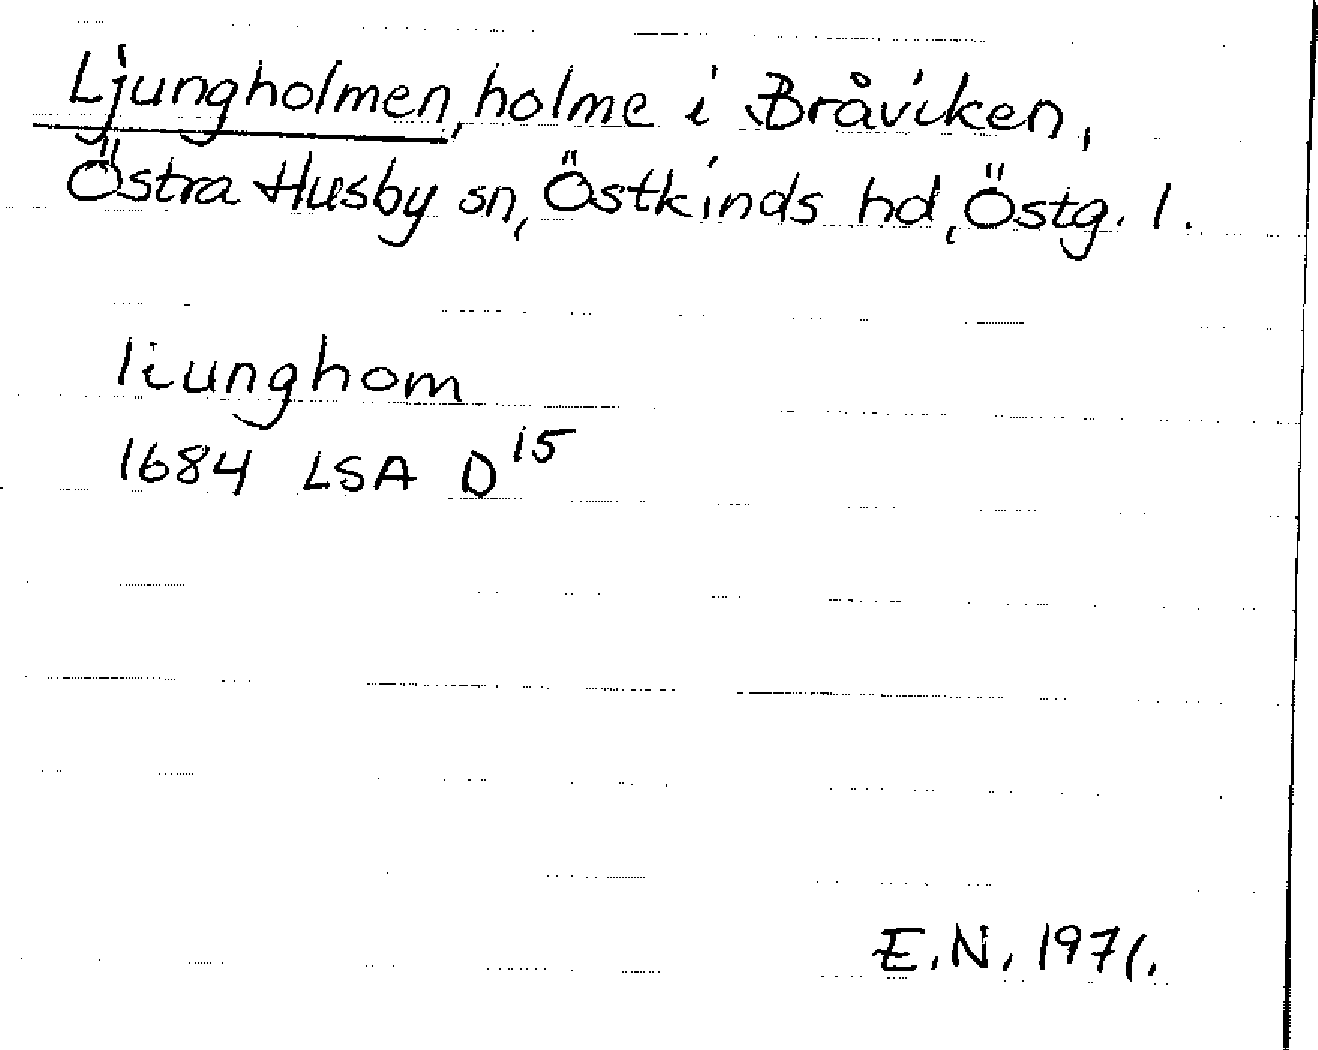 Ljungholmen, holme i Bråviken,
Östra Husby sn, Östkinds hd, Östg. l.
liunghom
1684 LSA D15
E.N. 1971.